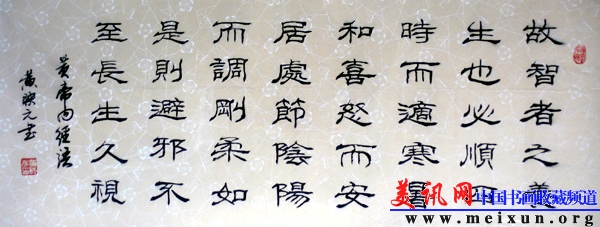 故智者之養
生也必順四
時而適寒暑
和喜怒而安
居處節陰陽
而調剛柔如
是則避邪不
至長生久視
黄帝内經語
美讯网
中国书画收藏频道
www.meixun.org